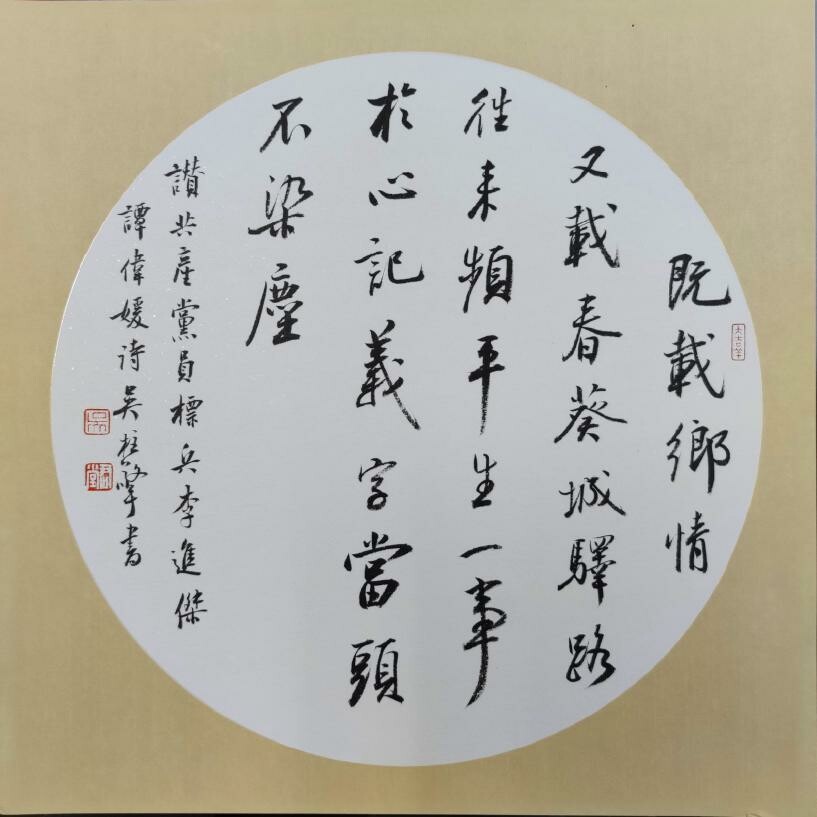 既載鄉情
又載春葵城驛路
往来頻平生一事
於心記義字當頭
不染塵
讃共產黨員標兵李進傑
譚偉媛詩吳桂峰書